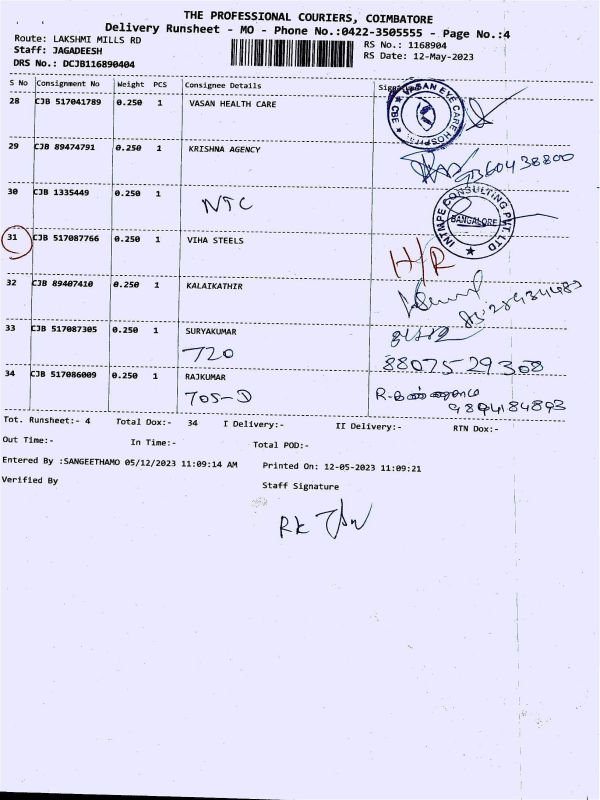 THE PROFESSIONAL COURIERS, COIMBATORE
Delivery Runsheet - MO - Phone No.:0422-3505555 - Page No.:4
Route: LAKSHMI MILLS RD
RS No.: 1168904
Staff: JAGADEESH
RS Date: 12-May-2023
DRS No.: DCJB116890404
S No Consignment No Weight PCS Consignee Details
28 CJB 517041789 0.250 1 VASAN HEALTH CARE
VASAN EYE CARE HOSPITAL
CBE
29 CJB 89474791 0.250 1 KRISHNA AGENCY
30 CJB 1335449 0.250 1
NTC
INTMPE CONSULTING PVT. LTD
BANGALORE
31 CJB 517087766 0.250 1 VIHA STEELS
H/R
32 CJB 89407410 0.250 1 KALAIKATHIR
33 CJB 517087305 0.250 1 SURYAKUMAR
T20
88075 29308
34 CJB 517086009 0.250 1 RAJKUMAR
TOS-D
9894184893
Tot. Runsheet:- 4 Total Dox:- 34 I Delivery:- II Delivery:- RTN Dox:-
Out Time:- In Time:- Total POD:-
Entered By :SANGEETHAMO 05/12/2023 11:09:14 AM Printed On: 12-05-2023 11:09:21
Verified By Staff Signature